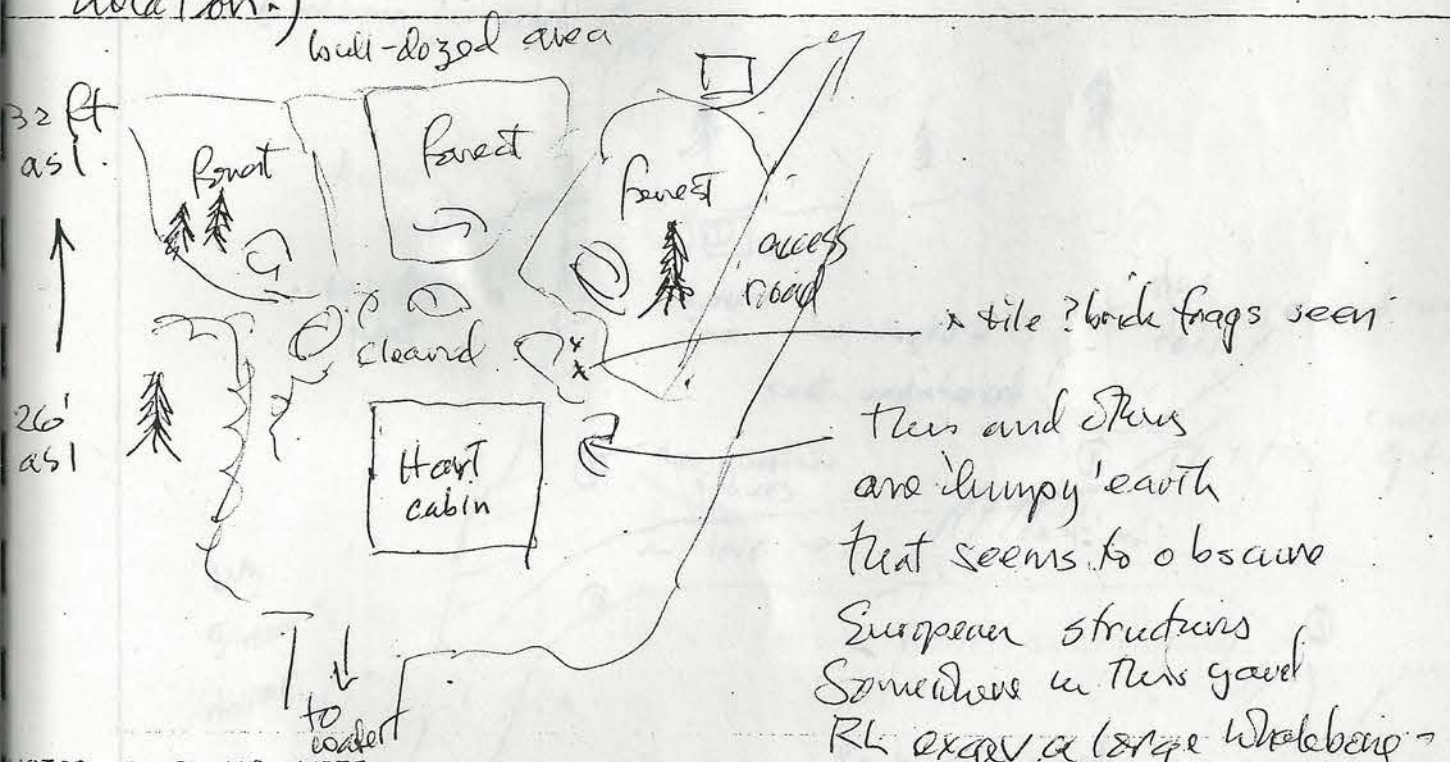 bull-dozed area
32 ft
asl.
forest
forest
forest
access
road
x tile? brick frags seen
cleared
26'
asl
Hart
cabin
This and others
are 'lumpy' earth
that seems to obscure
European structures
Somewhere in this yard
RL excav. a large whalebone -
to
water